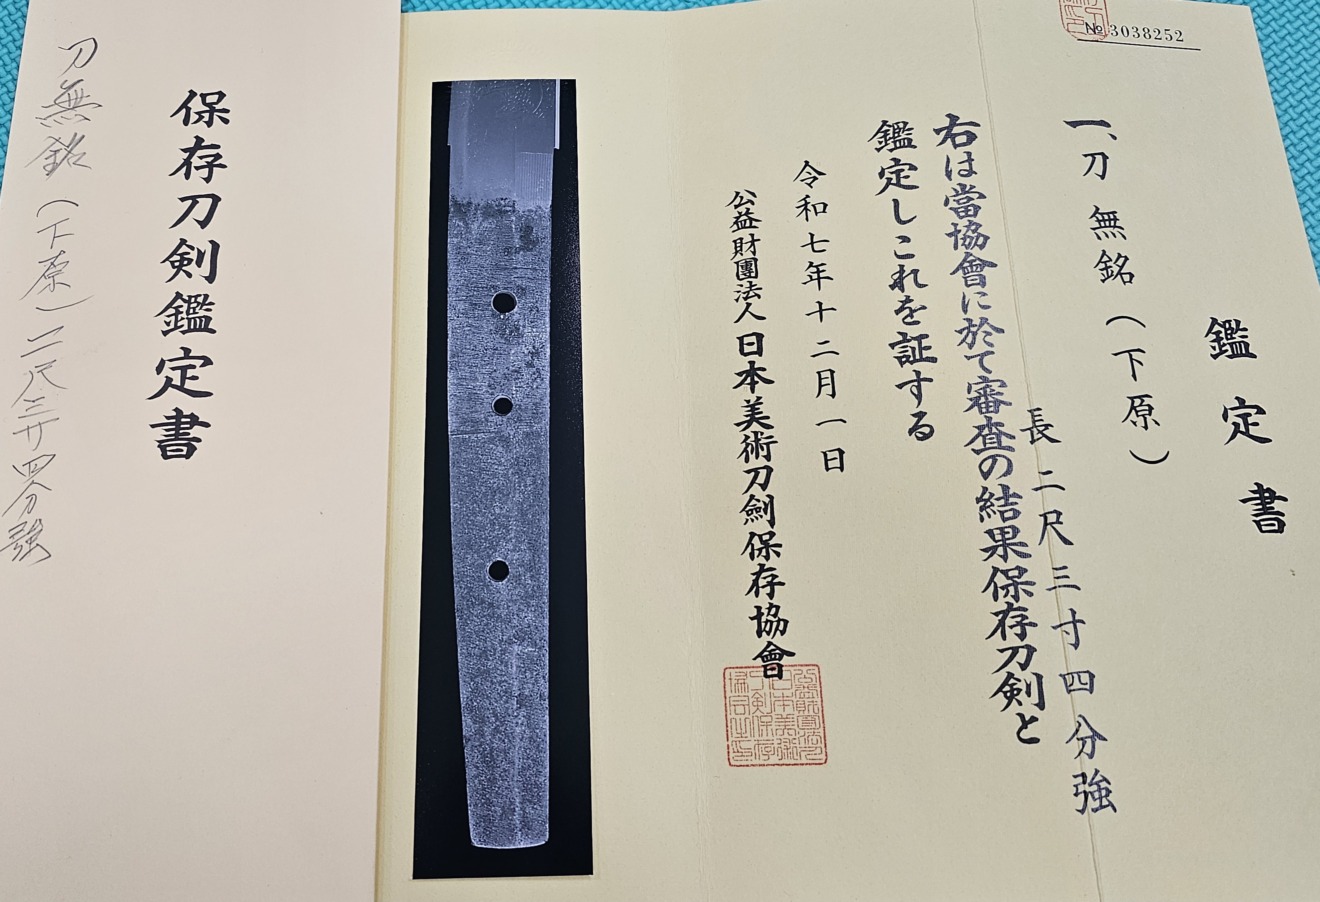 № 3038252
鑑定書
一、刀 無銘(下原)
長二尺三寸四分強
右は當協會に於て審査の結果保存刀剣と
鑑定しこれを証する
令和七年十二月一日
公益財團法人日本美術刀劍保存協會
保存刀剣鑑定書
刀無銘(下原)二尺三寸四分強